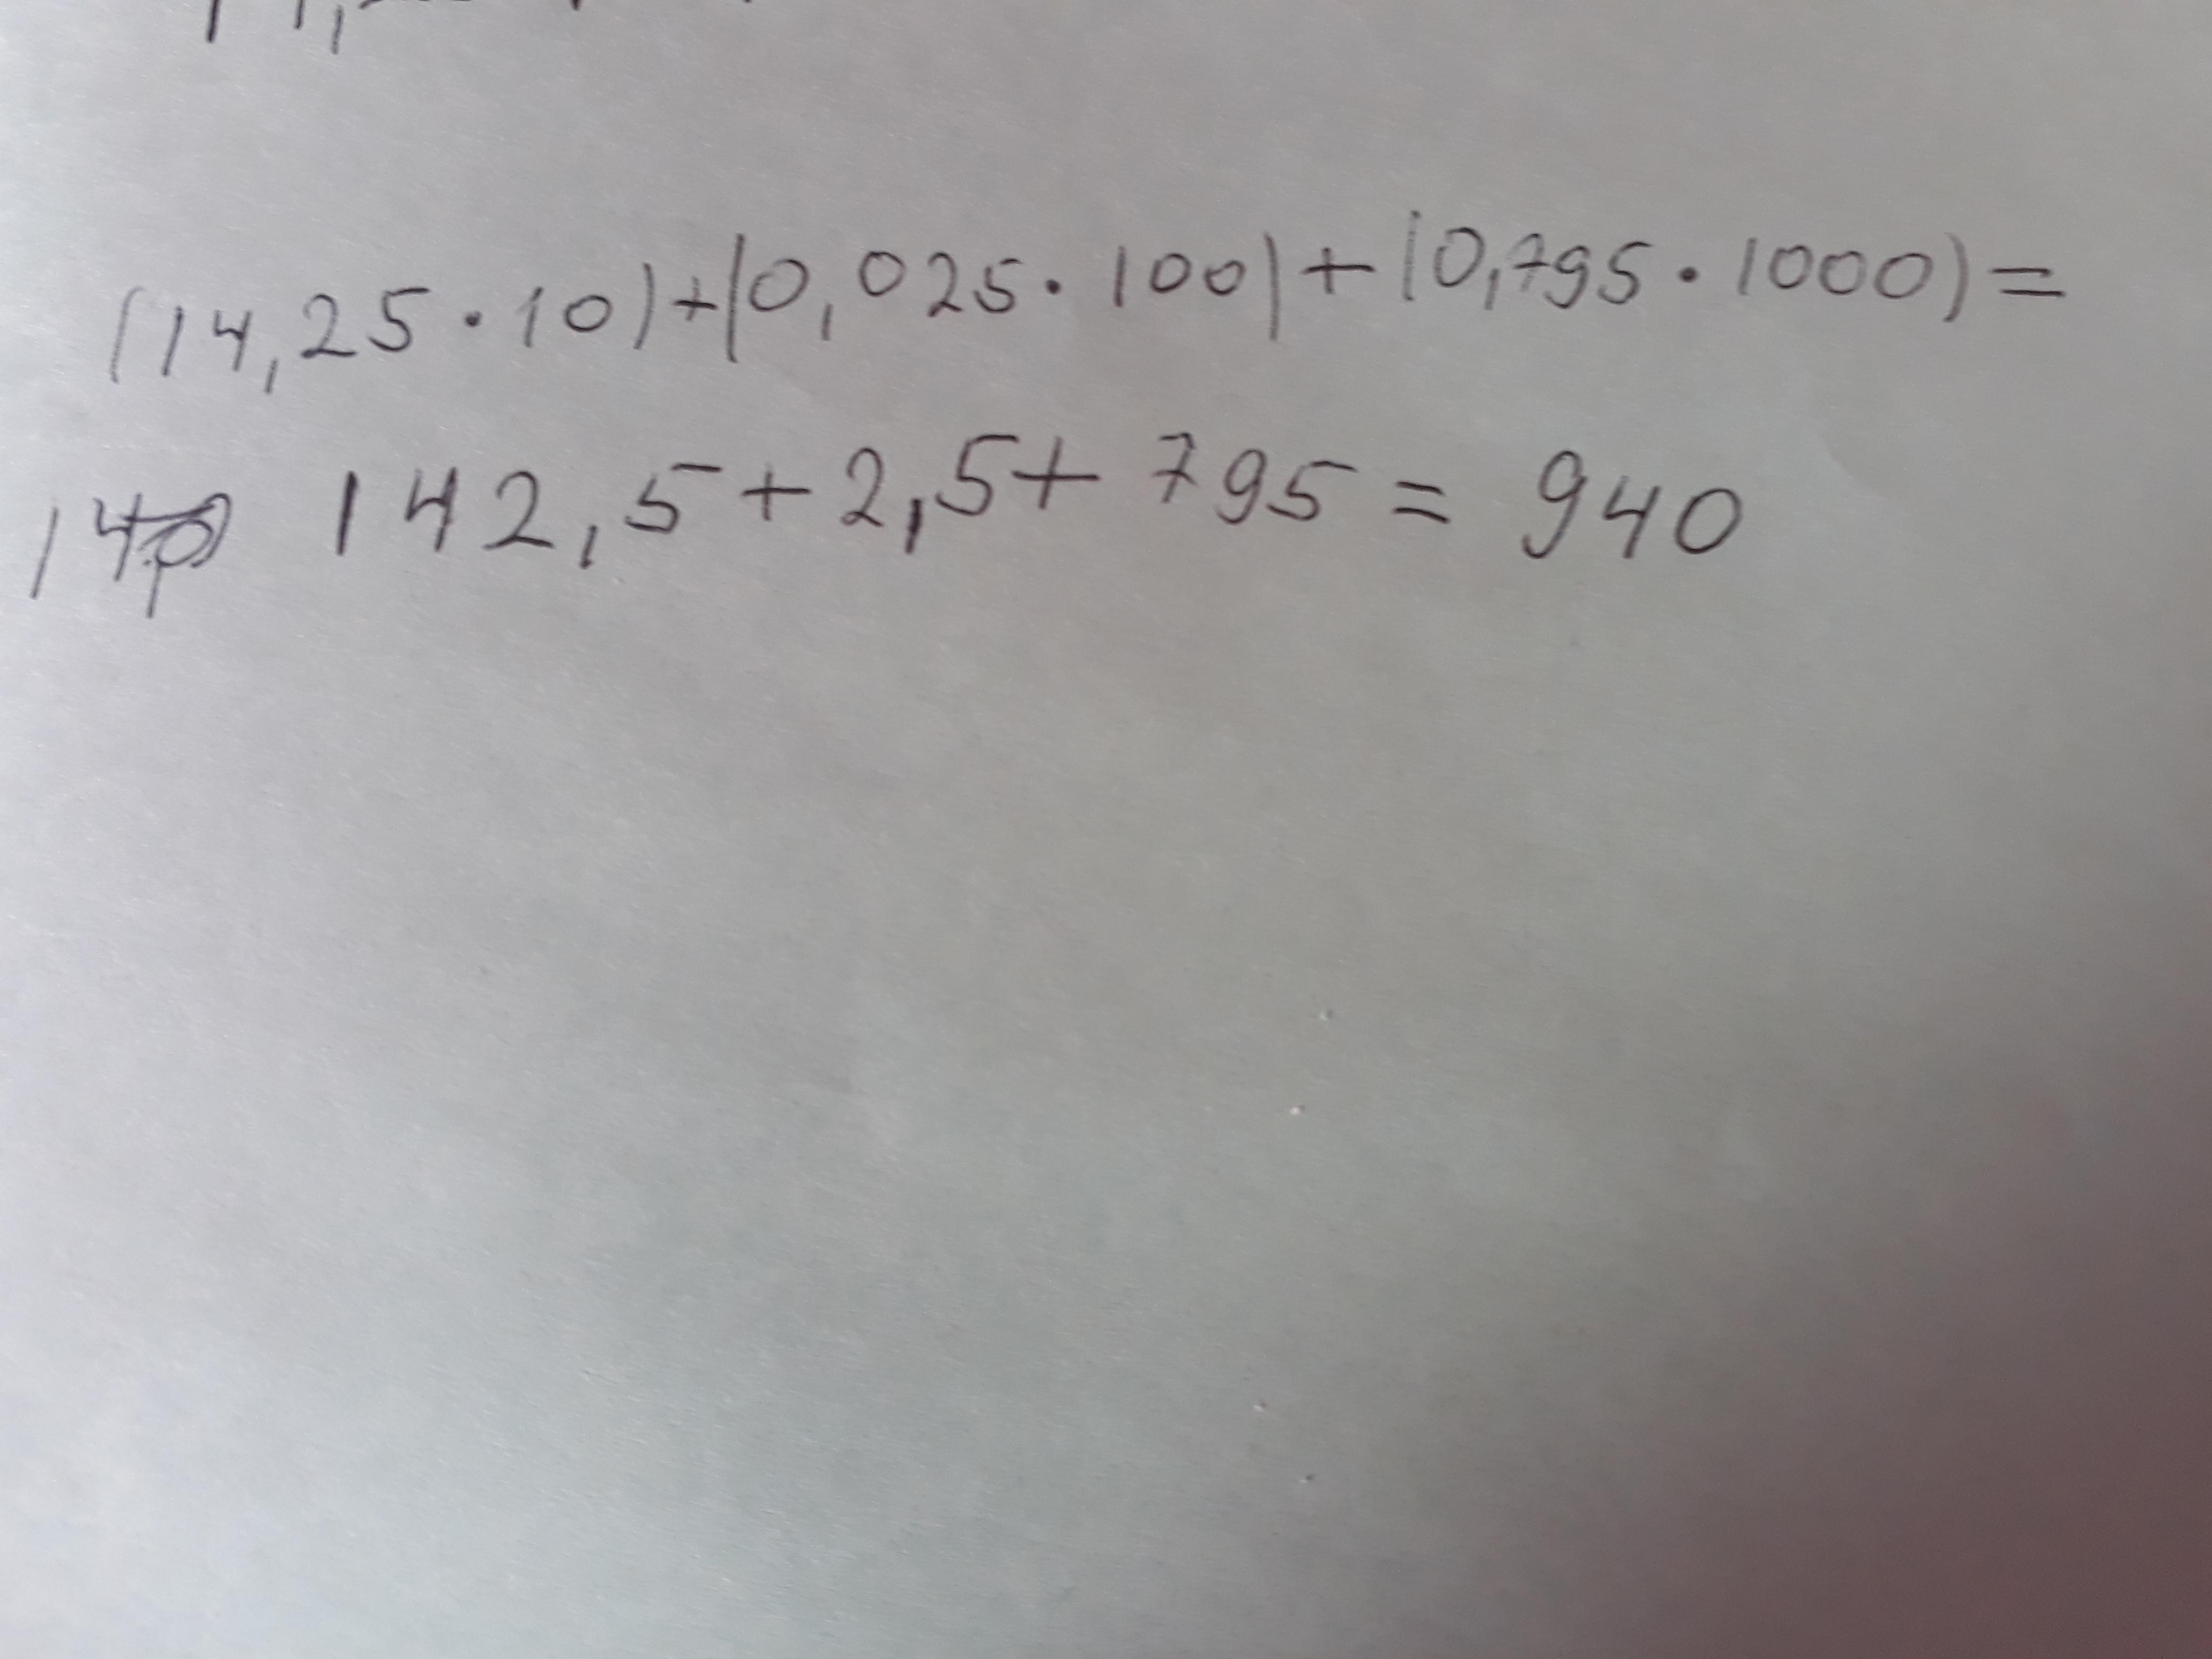 (14,25·10)+(0,025·100)+(0,795·1000)=
142,5+2,5+795=940